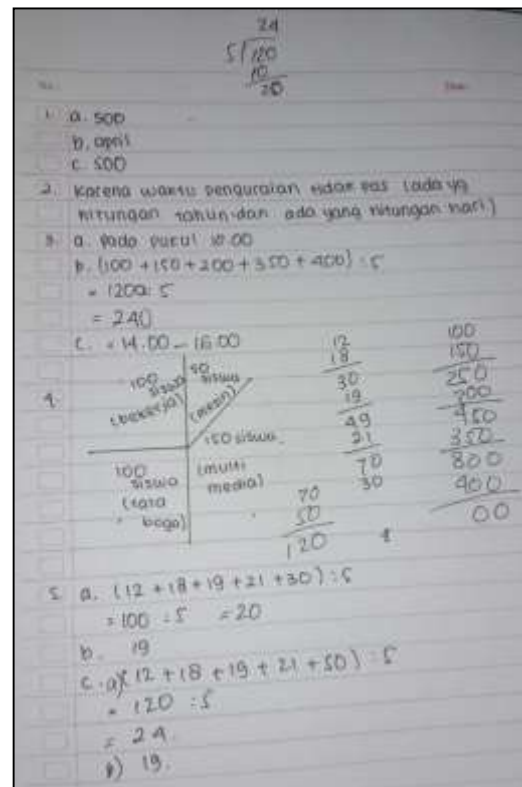 24
5/120
10
20
1. a. 500
b. april
c. 500
2. Karena waktu penguraian tidak pas (ada yg
hitungan tahun dan ada yang hitungan hari)
3. a. Pada pukul 10.00
b. (100 + 150 + 200 + 350 + 400) : 5
= 1200 : 5
= 240
c. = 14.00 - 16.00
4.
100 siswa (bekerja)
50 siswa (mesin)
150 siswa (multi media)
100 siswa (tata boga)
12
18
30
19
49
21
70
30
70
50
120
100
150
250
200
450
350
800
400
00
5. a. (12 + 18 + 19 + 21 + 30) : 5
= 100 : 5 = 20
b. 19
c. a) (12 + 18 + 19 + 21 + 50) : 5
= 120 : 5
= 24.
b) 19.